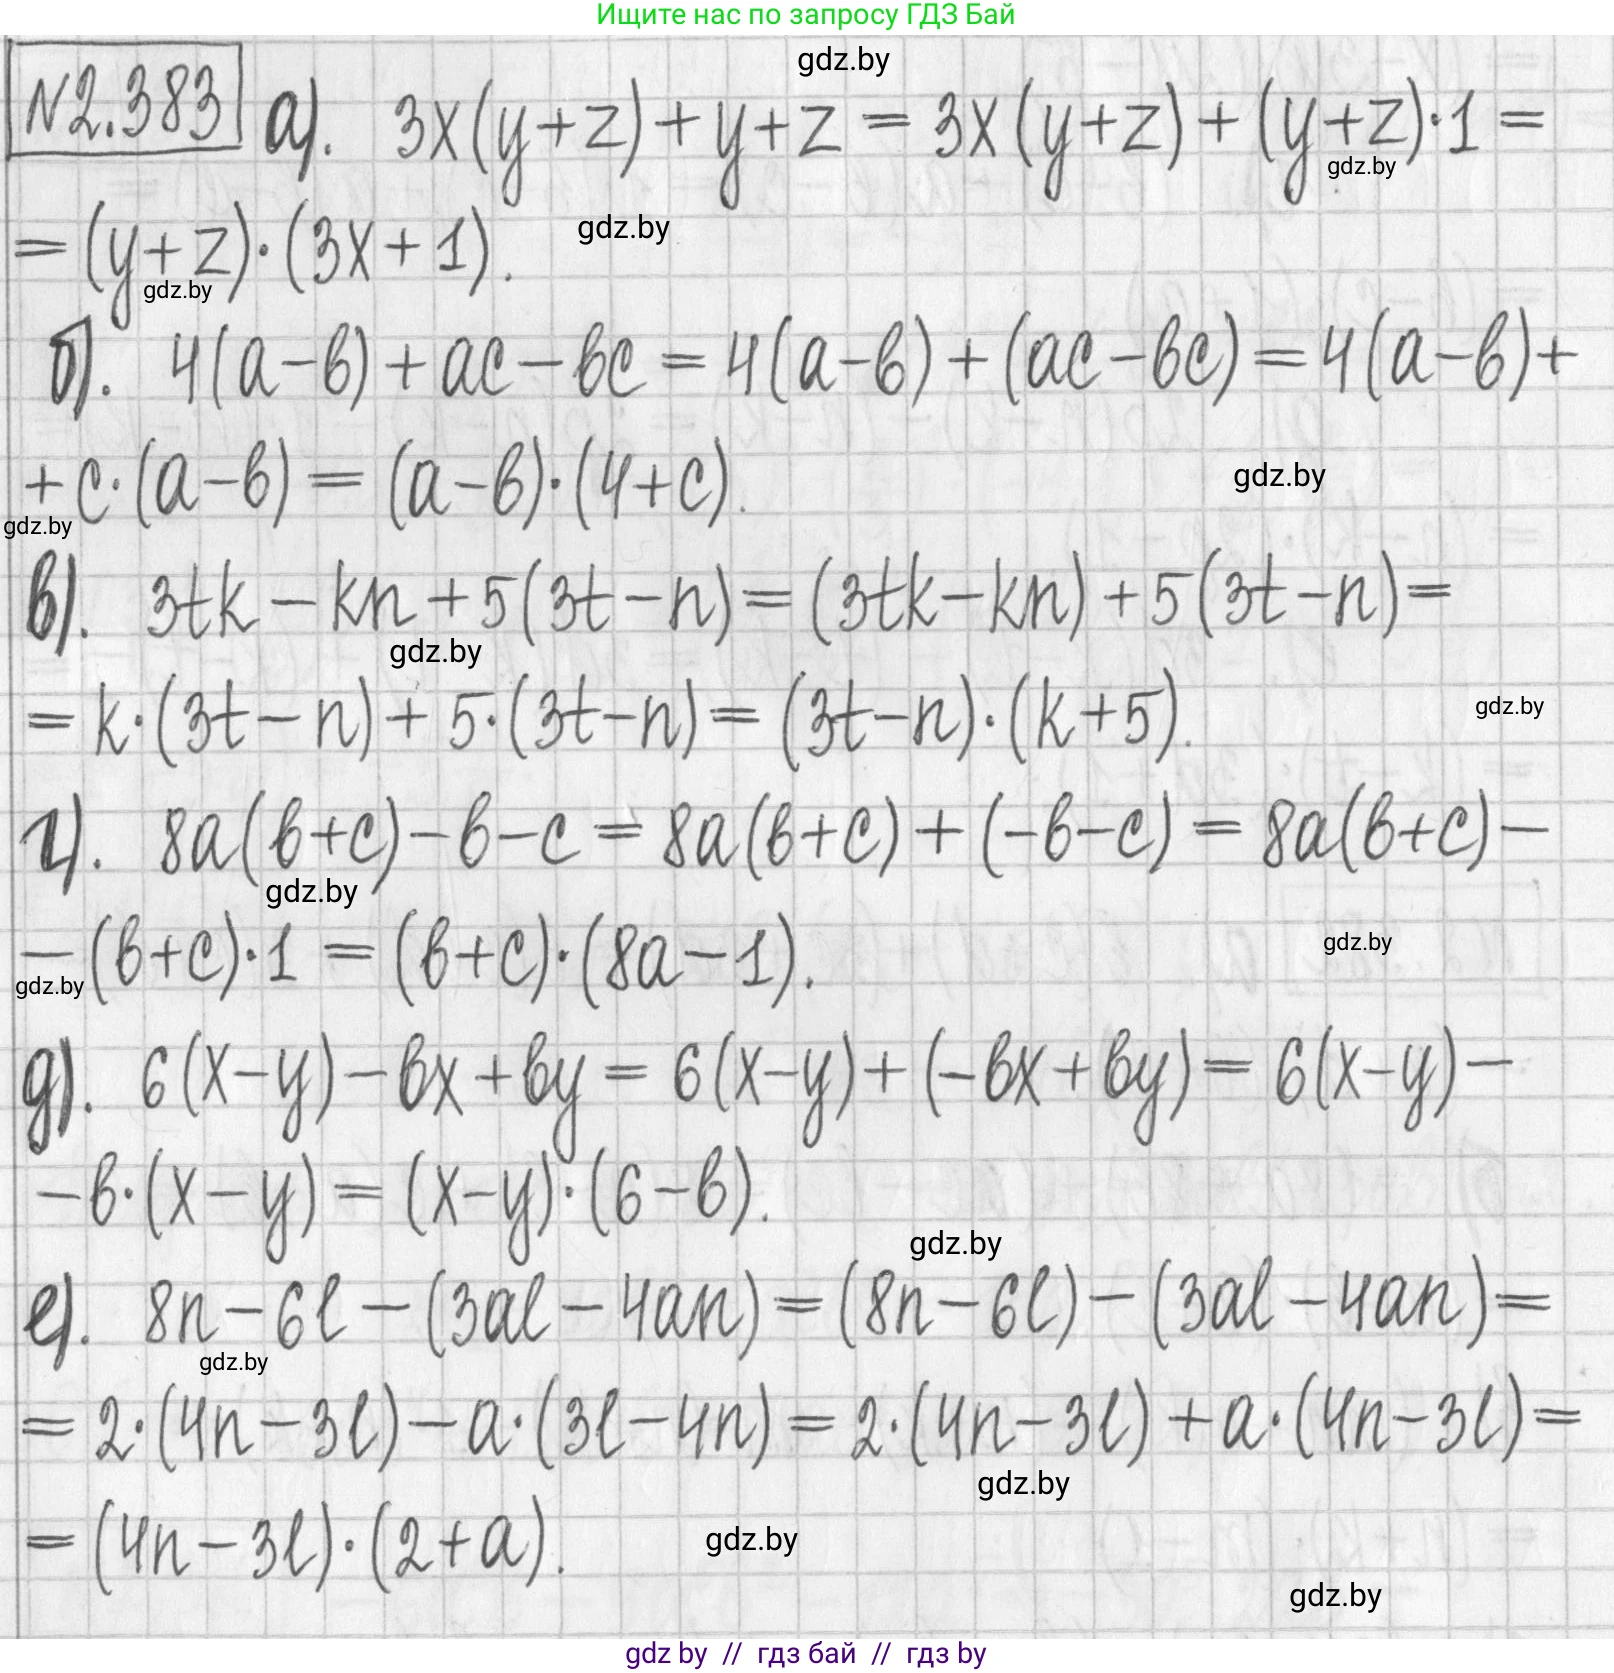 Ищите нас по запросу ГДЗ Бай
gdz.by
№2.383 а). 3x(y+z)+y+z=3x(y+z)+(y+z)·1=
gdz.by
=(y+z)·(3x+1).
gdz.by
gdz.by
б). 4(a-в)+ac-вc=4(a-в)+(ac-вc)=4(a-в)+
+c·(a-в)=(a-в)·(4+c).
gdz.by
gdz.by
в). 3tk-kn+5(3t-n)=(3tk-kn)+5(3t-n)=
gdz.by
=k·(3t-n)+5·(3t-n)=(3t-n)·(k+5).
gdz.by
г). 8a(в+c)-в-c=8a(в+c)+(-в-c)=8a(в+c)-
gdz.by
-(в+c)·1=(в+c)·(8a-1).
gdz.by
gdz.by
д). 6(x-y)-вx+вy=6(x-y)+(-вx+вy)=6(x-y)-
-в·(x-y)=(x-y)·(6-в).
gdz.by
е). 8n-6l-(3al-4an)=(8n-6l)-(3al-4an)=
gdz.by
=2·(4n-3l)-a·(3l-4n)=2·(4n-3l)+a·(4n-3l)=
gdz.by
=(4n-3l)·(2+a).
gdz.by
gdz.by
gdz by // гдз бай // гдз by